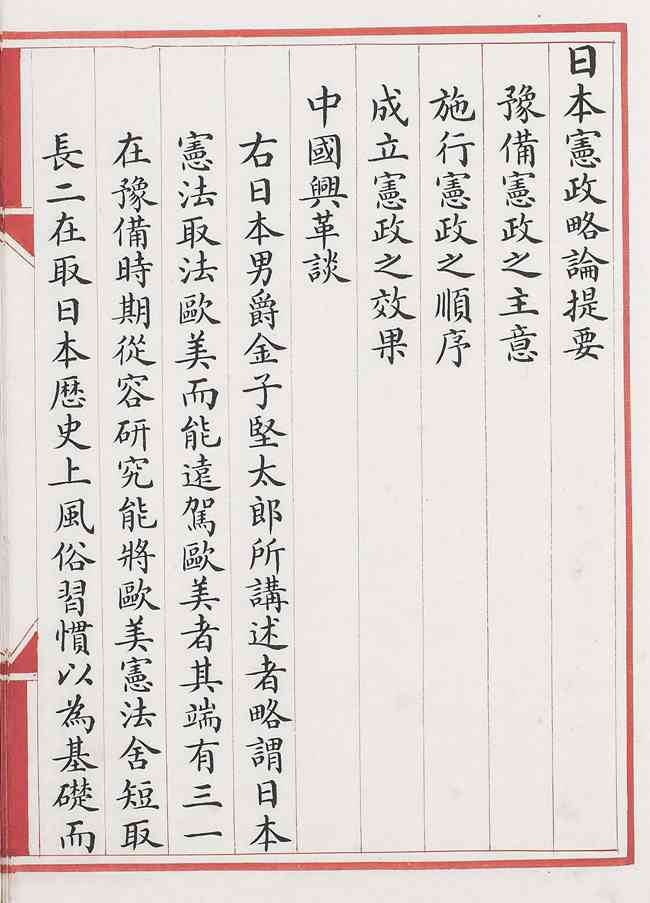 日本憲政略論提要
豫備憲政之主意
施行憲政之順序
成立憲政之效果
中國興革談
右日本男爵金子堅太郎所講述者略謂日本
憲法取法歐美而能遠駕歐美者其端有三一
在豫備時期從容研究能將歐美憲法舍短取
長二在取日本歷史上風俗習慣以為基礎而